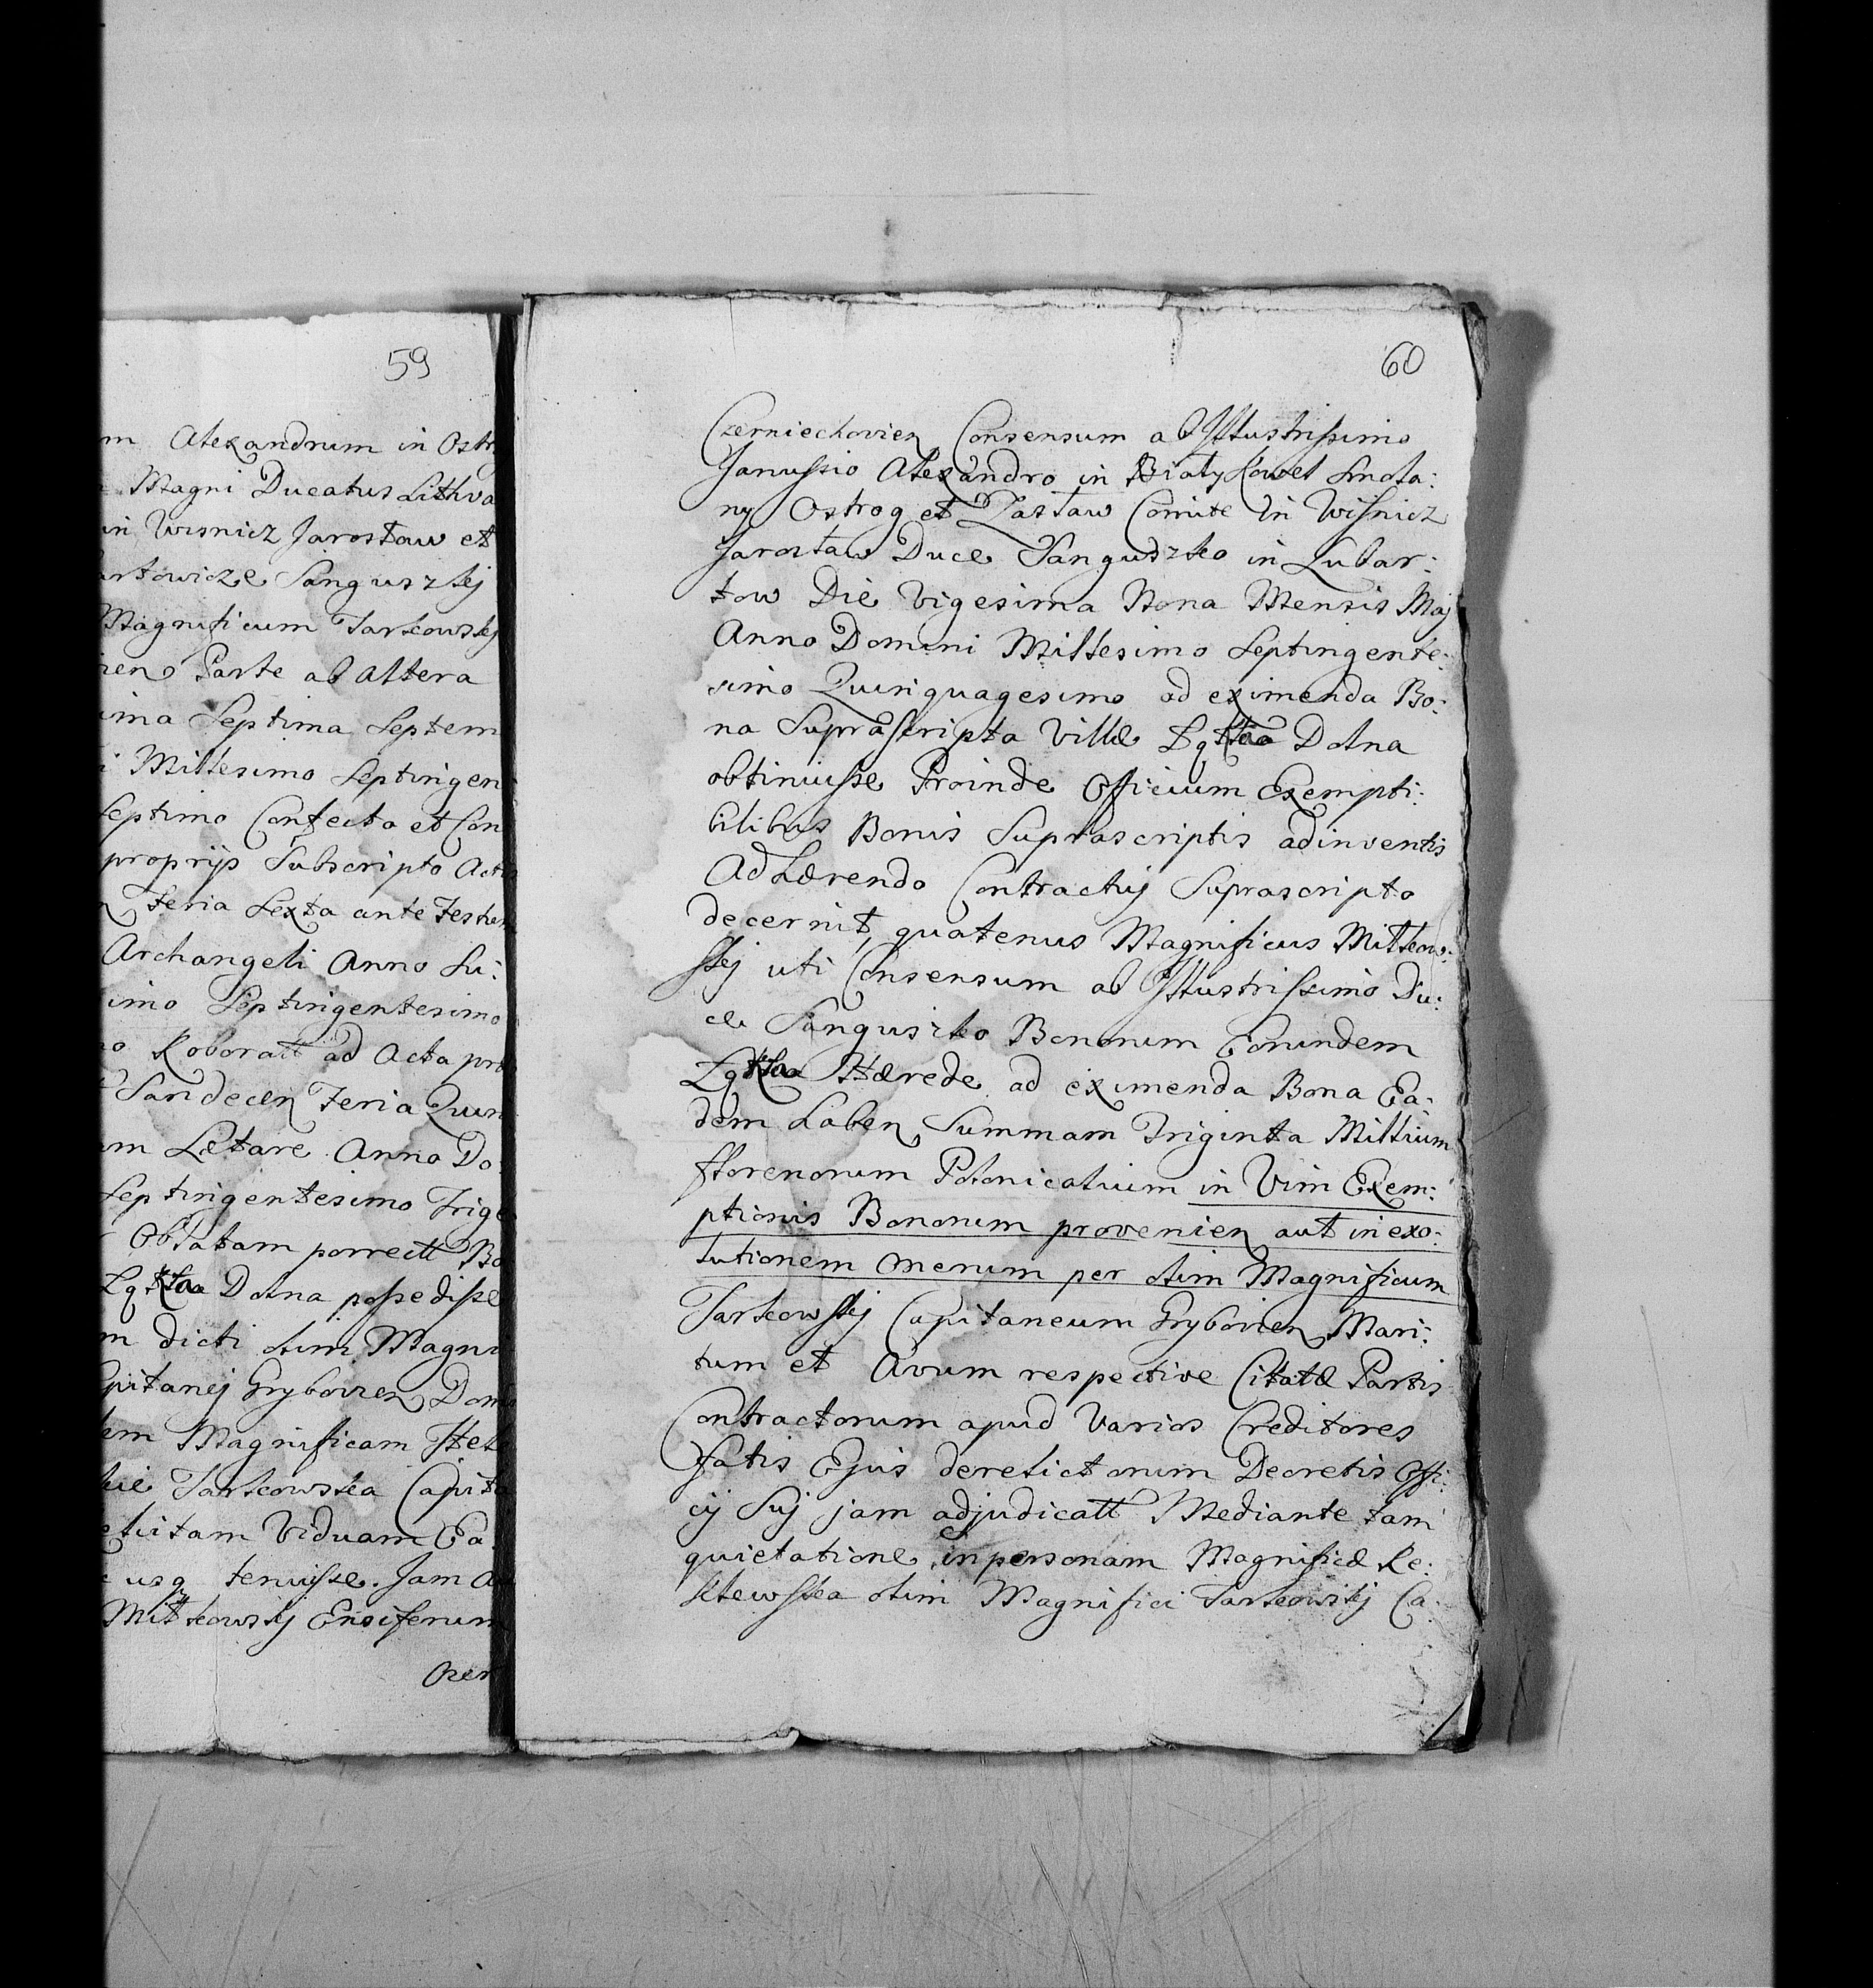 59
m Alexandrum in Ostr
Magni Ducatus Lithva
in Wisnicz Jarosław et
artowicze Sanguszkj
Magnificum Tarłowskj
Parte ab altera
ima Septima Septem
i Millesimo Septingen
Septimo Confecto et Con
proprijs Subscripto Actis
Feria Sexta ante Festum
Archangeli Anno Su:
imo Septingentesimo
Roboratt ad Acta
Sandecen Feria Quin
m Lætare Anno Do
Septingentesimo Trige
Oblatam porrectt Bo
Łąkta Dolna possedisse
m dicti olim Magni
Capitanej Grybovien Dom
em Magnificam Hel
Tarłowska Capit
elictam Viduam Ea
usq tenuisse. Jam
Miłkowskj Ensiferum
Czer
60
Czerniechovien Consensum ab Illustrissimo
Janussio Alexandro in Białykowel Smola:
ny Ostrog et Zasław Comite in Wisnicz
Jarosław Duce Sanguszko in Lubar:
tow Die Vigesima Nona Mensis Maj
Anno Domini Millesimo Septingente:
simo Quinquagesimo ad eximenda Bo:
na Suprascripta Villæ Łąkta Dolna
obtinuisse Proinde Officium Exempti:
bilibus Bonis Suprascriptis adinventis
Adhærendo Contractuj Suprascripto
decernit, quatenus Magnificus Miłkow:
skj uti Consensum ab Illustrissimo Du:
ce Sanguszko Bonorum Eorundem
Łąkta Hærede ad eximenda Bona Ea:
dem haben Summam Triginta Millium
fflorenorum Polonicalium in Vim Exem:
ptionis Bonorum provenien aut in exo:
lutionem onerum per olim Magnificum
Tarłowskj Capitaneum Grybovien Mari:
tum et Avum respective Citatæ Partis
Contractorum apud Varios Creditores
fatis Ejus derelictorum Decretis Offi:
cij Suj jam adjudicatt Mediante tam
quietatione in personam Magnificæ Re:
klewska olim Magnifici Tarłowskj Ca: